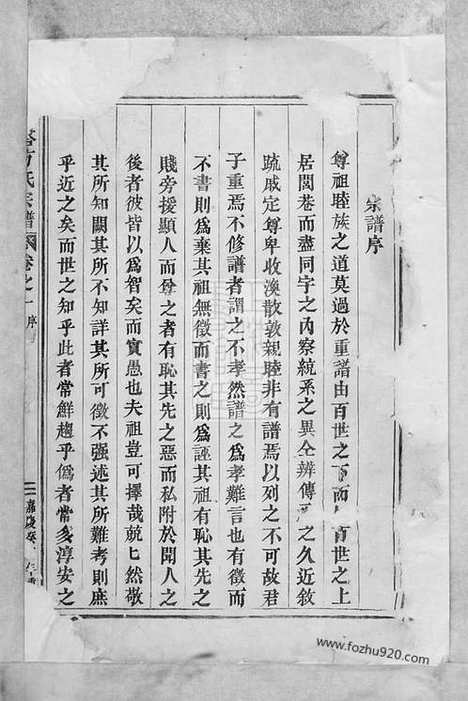 宗譜序
尊祖睦族之道莫過於重譜由百世之下而 百世之上
居閭巷而盡同宇之內察統系之異仝辨傳 之久近敘
疏戚定尊卑收渙散敦親睦非有譜焉以列之不可故君
子重焉不修譜者謂之不孝然譜之為孝難言也有徵而
不書則為棄其祖無徵而書之則為誣其祖有恥其先之
賤旁援顯人而尊之者有恥其先之惡而私附於聞人之
後者彼皆以為智矣而實愚也夫祖豈可擇哉兢匕然敬
其所知闕其所不知詳其所可徵不强述其所難考則庶
乎近之矣而世之知乎此者常鮮趨乎僞者常多淳安之
方氏宗譜 卷之一 序
嘉慶
www.fozhu920.com